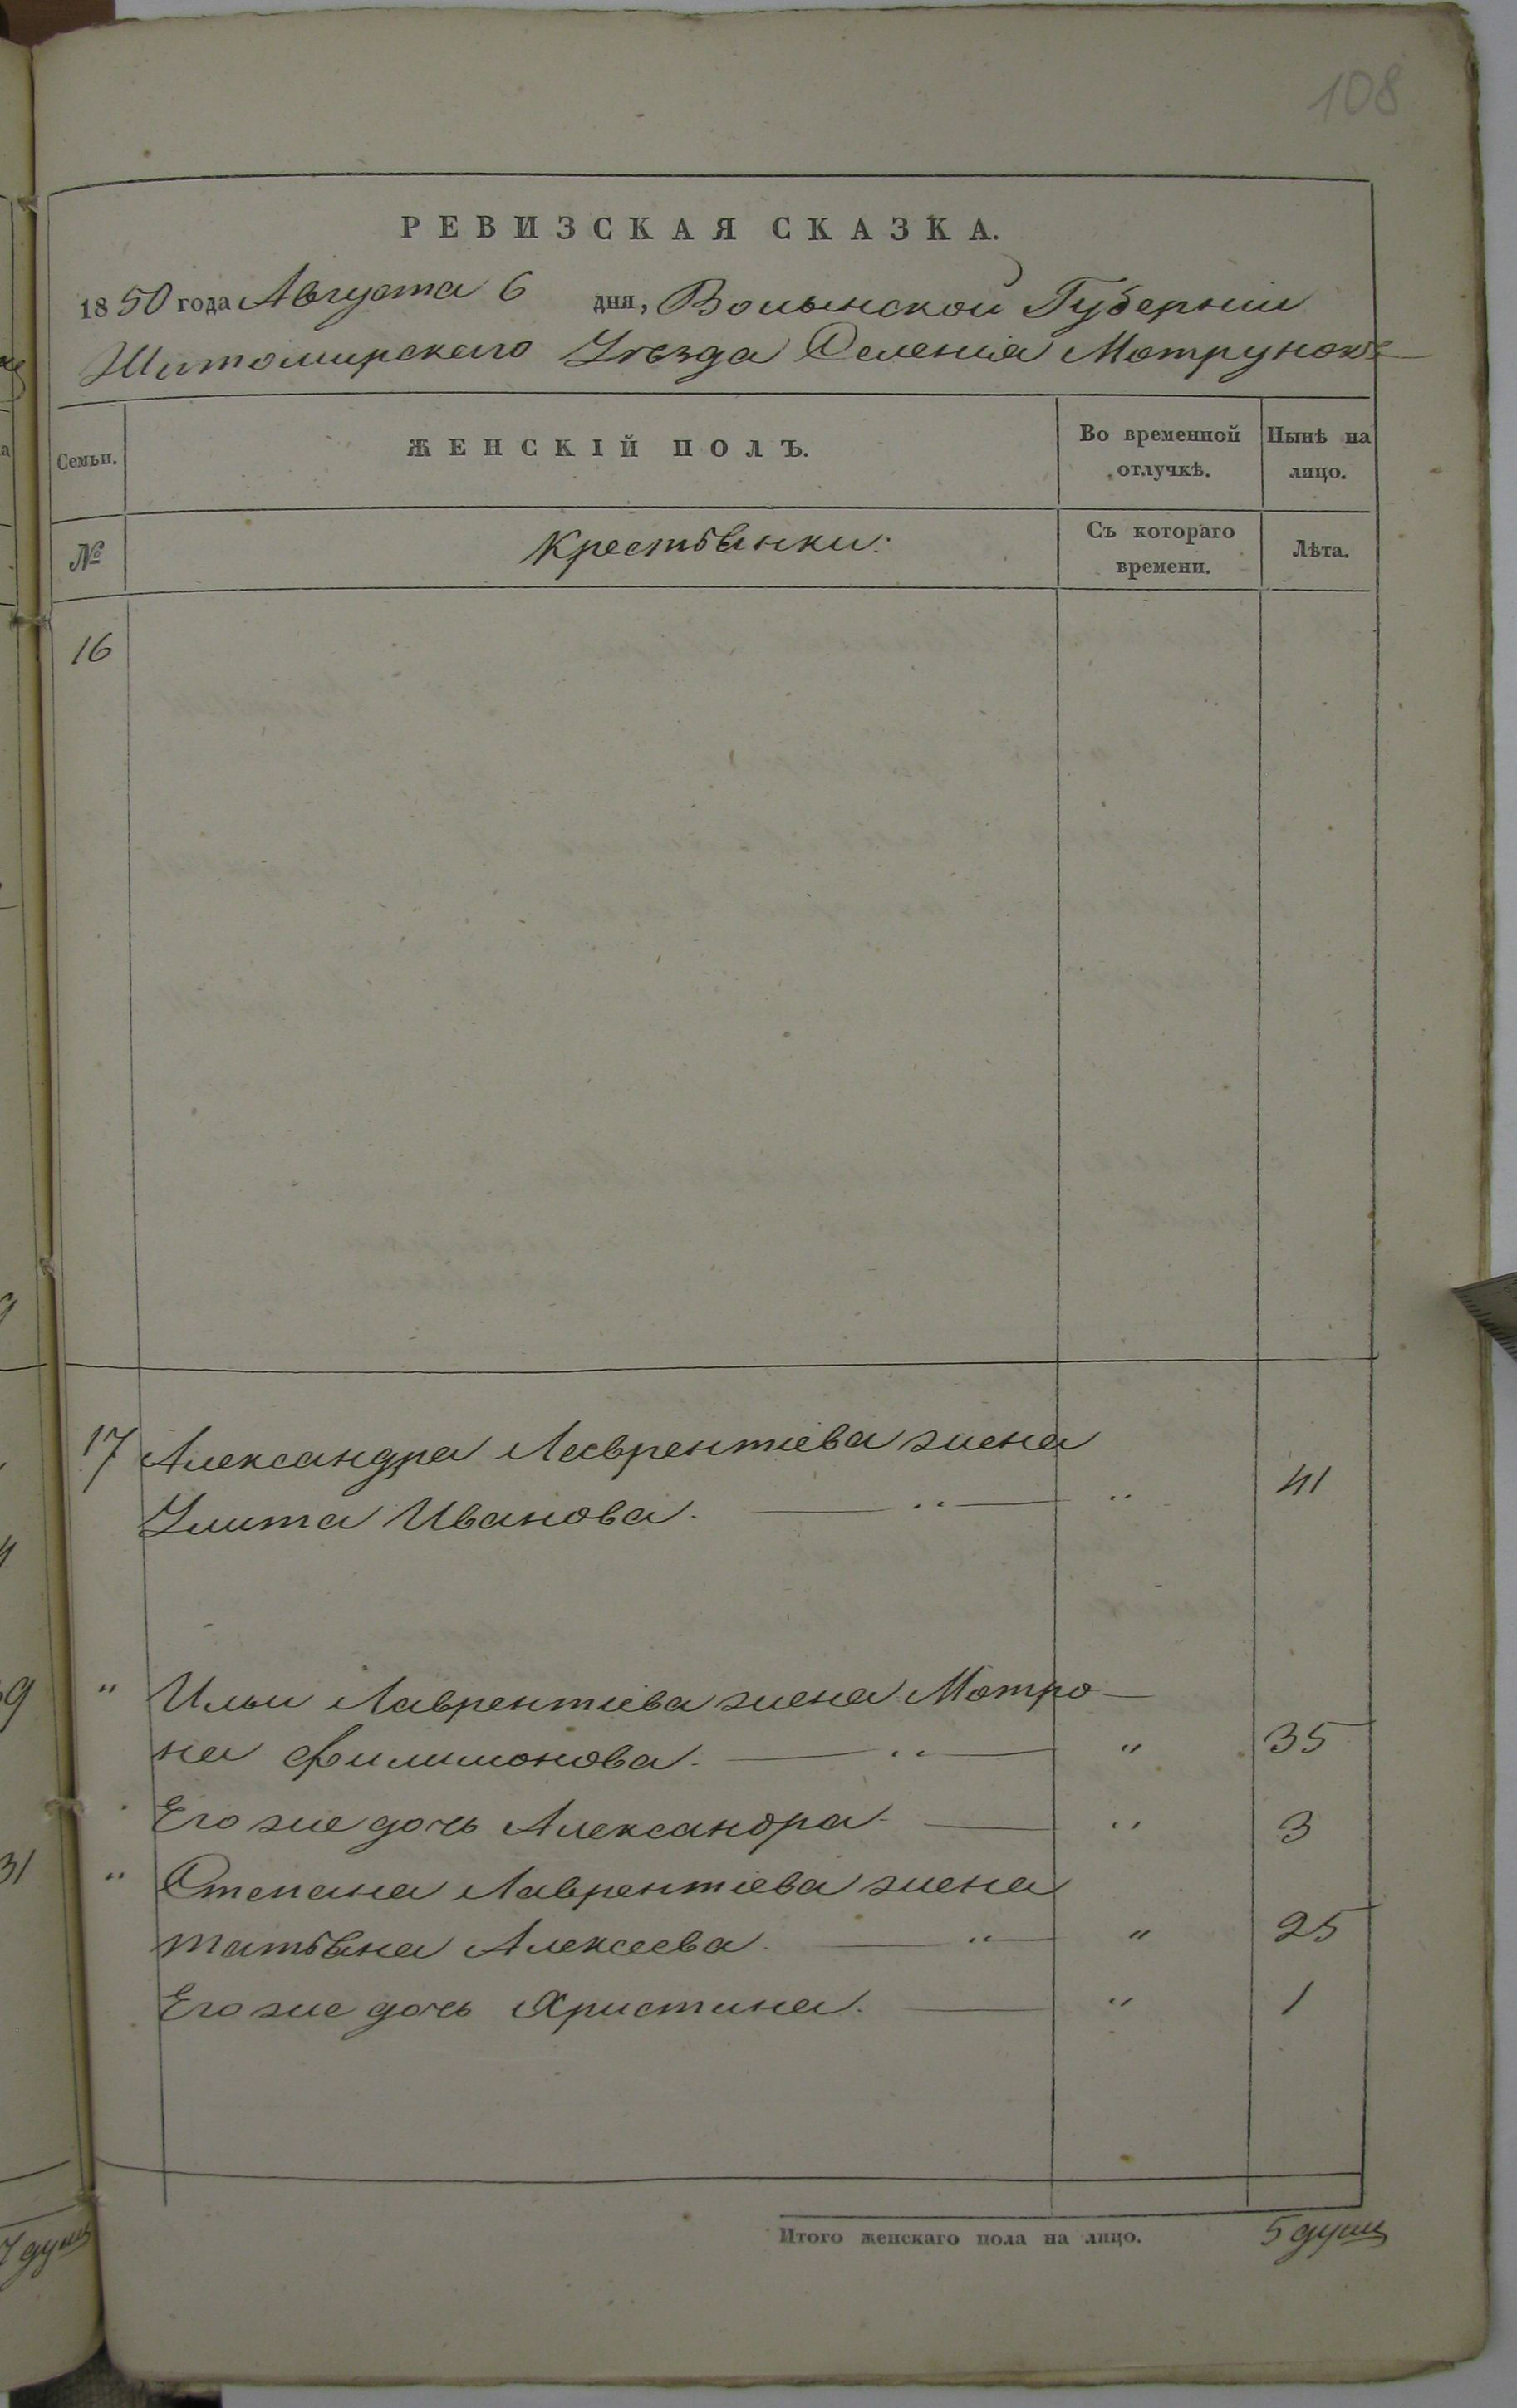 108
РЕВИЗСКАЯ СКАЗКА.
1850 года Августа 6 дня, Волынской Губерніи
Житомирскаго Уѣзда Селенія Мотрунокъ
Семьи. ЖЕНСКІЙ ПОЛЪ. Во временной отлучкѣ. Нынѣ на лицо.
№ Крестьянки: Съ котораго времени. Лѣта.
16
17 Александра Лаврентіева жена
Улита Иванова. — " — " 41
" Ильи Лаврентіева жена Матро-
на Филимонова. — " — " 35
Его же дочь Александра. — " 3
" Степана Лаврентіева жена
Татьяна Алексеева. — " — " 25
Его же дочь Христина. — " 1
Итого женскаго пола на лицо. 5 душъ